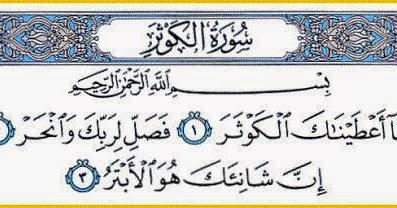 سُورَةُ الْكَوْثَرِ
بِسْمِ اللَّهِ الرَّحْمَٰنِ الرَّحِيمِ
أَعْطَيْنَاكَ الْكَوْثَرَ ١ فَصَلِّ لِرَبِّكَ وَانْحَرْ
إِنَّ شَانِئَكَ هُوَ الْأَبْتَرُ ٣